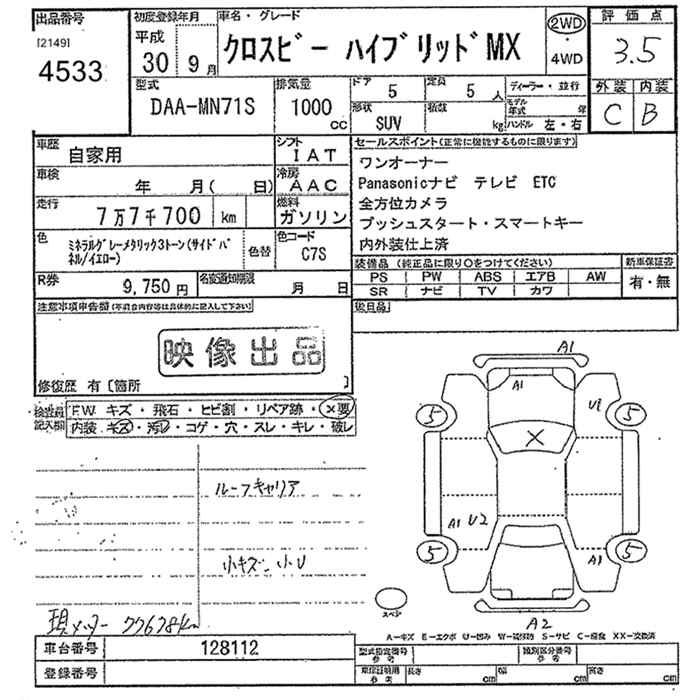 出品番号
[2149]
4533
初度登録年月
平成
30 9月
車名・グレード
クロスビー ハイブリッドMX
2WD
・
4WD
評価点
3.5
外装 内装
C B
型式
DAA-MN71S
排気量
1000
cc
ドア
5
定員
5人
形状
SUV
積載
kg
ディーラー・並行
モデル年式 年
ハンドル 左・右
車歴
自家用
シフト
IAT
車検
年 月( 日)
冷房
AAC
走行
7万7千700 km
燃料
ガソリン
色
ミネラルグレーメタリック3トーン(サイドパ
ネル/イエロー)
色替
色コード
C7S
R券
9,750円
名変通知期限
月 日
セールスポイント(正常に機能するものに限ります)
ワンオーナー
Panasonicナビ テレビ ETC
全方位カメラ
プッシュスタート・スマートキー
内外装仕上済
装備品(純正品に限り○をつけてください)
PS PW ABS エアB AW
SR ナビ TV カワ
新車保証書
有・無
後日品
注意事項申告欄(不具合内容等は具体的に記入して下さい)
映像出品
修復歴 有〔箇所 〕
検査員
記入欄
F.W キズ・飛石・ヒビ割・リペア跡・×要
内装 キズ・汚レ・コゲ・穴・スレ・キレ・破レ
ルーフキャリア
小キズ 小U
現メーター 77678km
A1
A1
U1
5 5
A1 U2
5 5
A1
A2
スペア
A-キズ E-エクボ U-凹み W-補修跡 S-サビ C-腐食 XX-交換済
車台番号
128112
登録番号
型式指定番号
参考
類別区分番号
参考
車庫証明用
参考
長さ cm
幅 cm
高さ cm